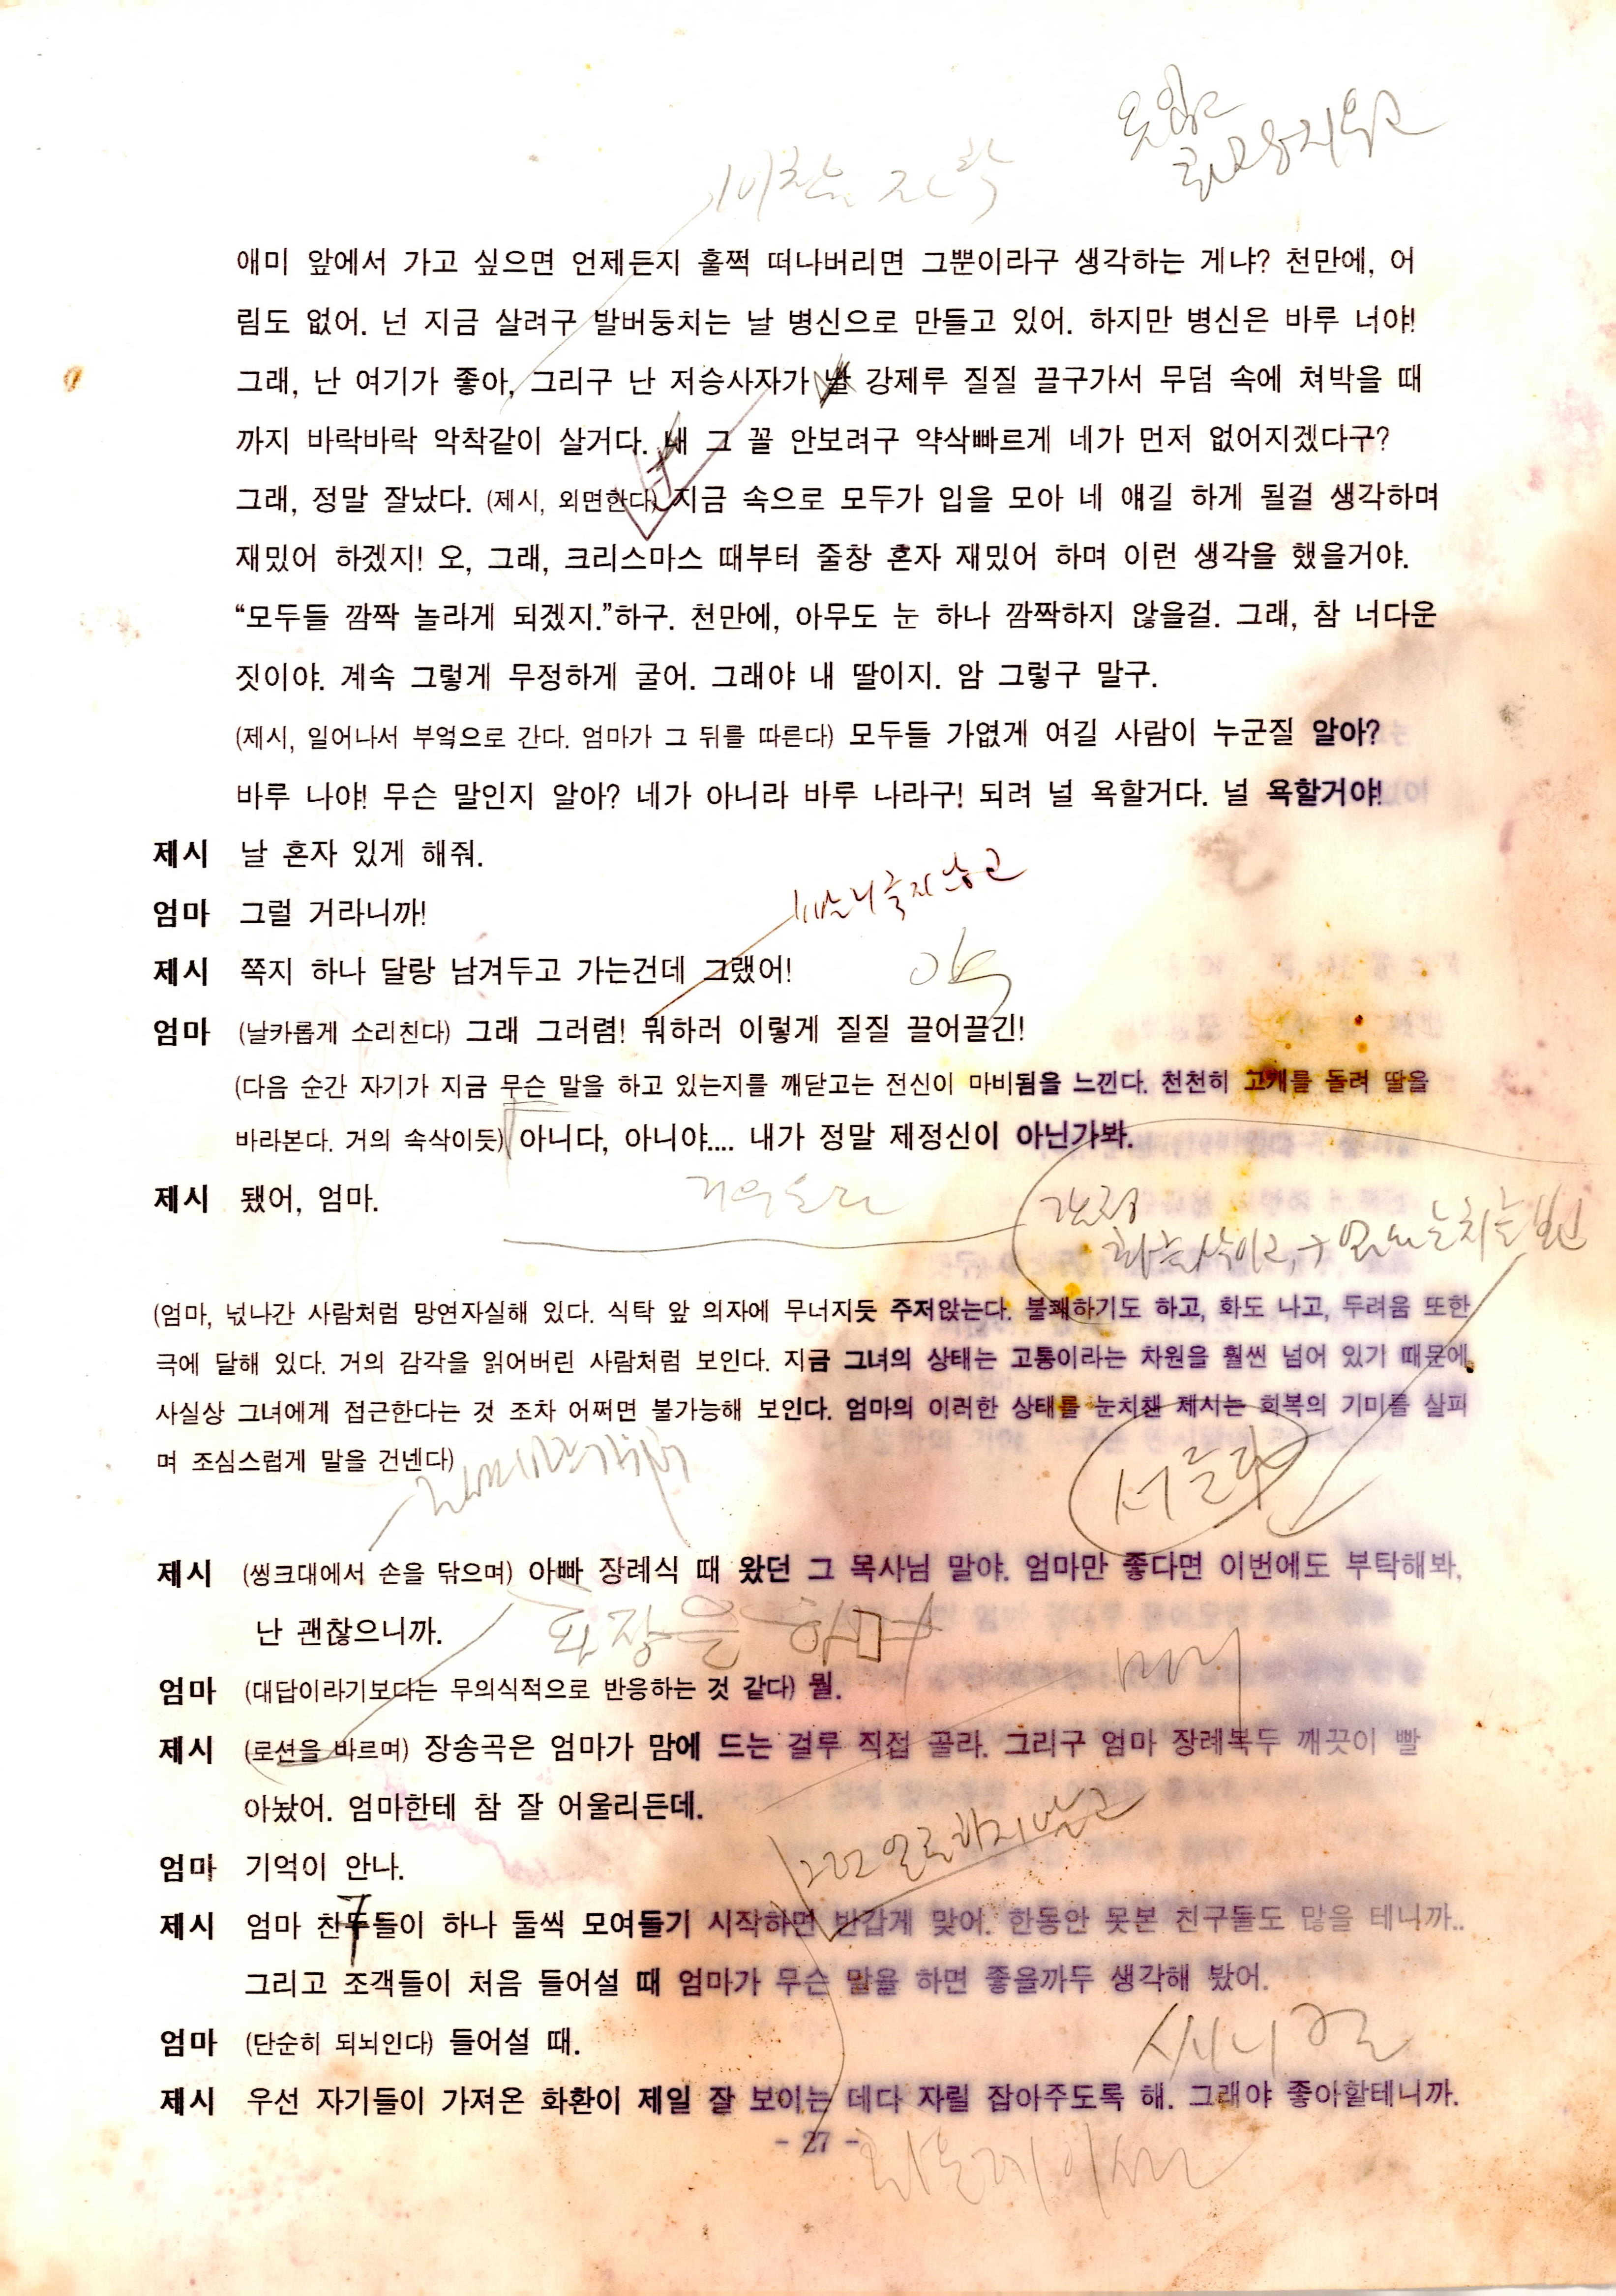 애미 앞에서 가고 싶으면 언제든지 훌쩍 떠나버리면 그뿐이라구 생각하는 게냐? 천만에, 어
림도 없어. 넌 지금 살려구 발버둥치는 날 병신으로 만들고 있어. 하지만 병신은 바루 너야!
그래, 난 여기가 좋아, 그리구 난 저승사자가 날 강제루 질질 끌구가서 무덤 속에 쳐박을 때
까지 바락바락 악착같이 살거다. 내 그 꼴 안보려구 약삭빠르게 네가 먼저 없어지겠다구?
그래, 정말 잘났다. (제시, 외면한다) 지금 속으로 모두가 입을 모아 네 얘길 하게 될걸 생각하며
재밌어 하겠지! 오, 그래, 크리스마스 때부터 줄창 혼자 재밌어 하며 이런 생각을 했을거야.
“모두들 깜짝 놀라게 되겠지.”하구. 천만에, 아무도 눈 하나 깜짝하지 않을걸. 그래, 참 너다운
짓이야. 계속 그렇게 무정하게 굴어. 그래야 내 딸이지. 암 그렇구 말구.
(제시, 일어나서 부엌으로 간다. 엄마가 그 뒤를 따른다) 모두들 가엾게 여길 사람이 누군질 알아?
바루 나야! 무슨 말인지 알아? 네가 아니라 바루 나라구! 되려 널 욕할거다. 널 욕할거야!
제시 날 혼자 있게 해줘.
엄마 그럴 거라니까!
제시 쪽지 하나 달랑 남겨두고 가는건데 그랬어!
엄마 (날카롭게 소리친다) 그래 그러렴! 뭐하러 이렇게 질질 끌어끌긴!
(다음 순간 자기가 지금 무슨 말을 하고 있는지를 깨닫고는 전신이 마비됨을 느낀다. 천천히 고개를 돌려 딸을
바라본다. 거의 속삭이듯) 아니다, 아니야.... 내가 정말 제정신이 아닌가봐.
제시 됐어, 엄마.
(엄마, 넋나간 사람처럼 망연자실해 있다. 식탁 앞 의자에 무너지듯 주저앉는다. 불쾌하기도 하고, 화도 나고, 두려움 또한
극에 달해 있다. 거의 감각을 읽어버린 사람처럼 보인다. 지금 그녀의 상태는 고통이라는 차원을 훨씬 넘어 있기 때문에,
사실상 그녀에게 접근한다는 것 조차 어쩌면 불가능해 보인다. 엄마의 이러한 상태를 눈치챈 제시는 회복의 기미를 살피
며 조심스럽게 말을 건넨다)
제시 (씽크대에서 손을 닦으며) 아빠 장례식 때 왔던 그 목사님 말야. 엄마만 좋다면 이번에도 부탁해봐,
난 괜찮으니까.
화장을 하며
엄마 (대답이라기보다는 무의식적으로 반응하는 것 같다) 뭘.
제시 (로션을 바르며) 장송곡은 엄마가 맘에 드는 걸루 직접 골라. 그리구 엄마 장례복두 깨끗이 빨
아놨어. 엄마한테 참 잘 어울리든데.
엄마 기억이 안나.
제시 엄마 친두들이 하나 둘씩 모여들기 시작하면 반갑게 맞어. 한동안 못본 친구들도 많을 테니까..
그리고 조객들이 처음 들어설 때 엄마가 무슨 말을 하면 좋을까두 생각해 봤어.
엄마 (단순히 되뇌인다) 들어설 때.
제시 우선 자기들이 가져온 화환이 제일 잘 보이는 데다 자릴 잡아주도록 해. 그래야 좋아할테니까.
- 27 -